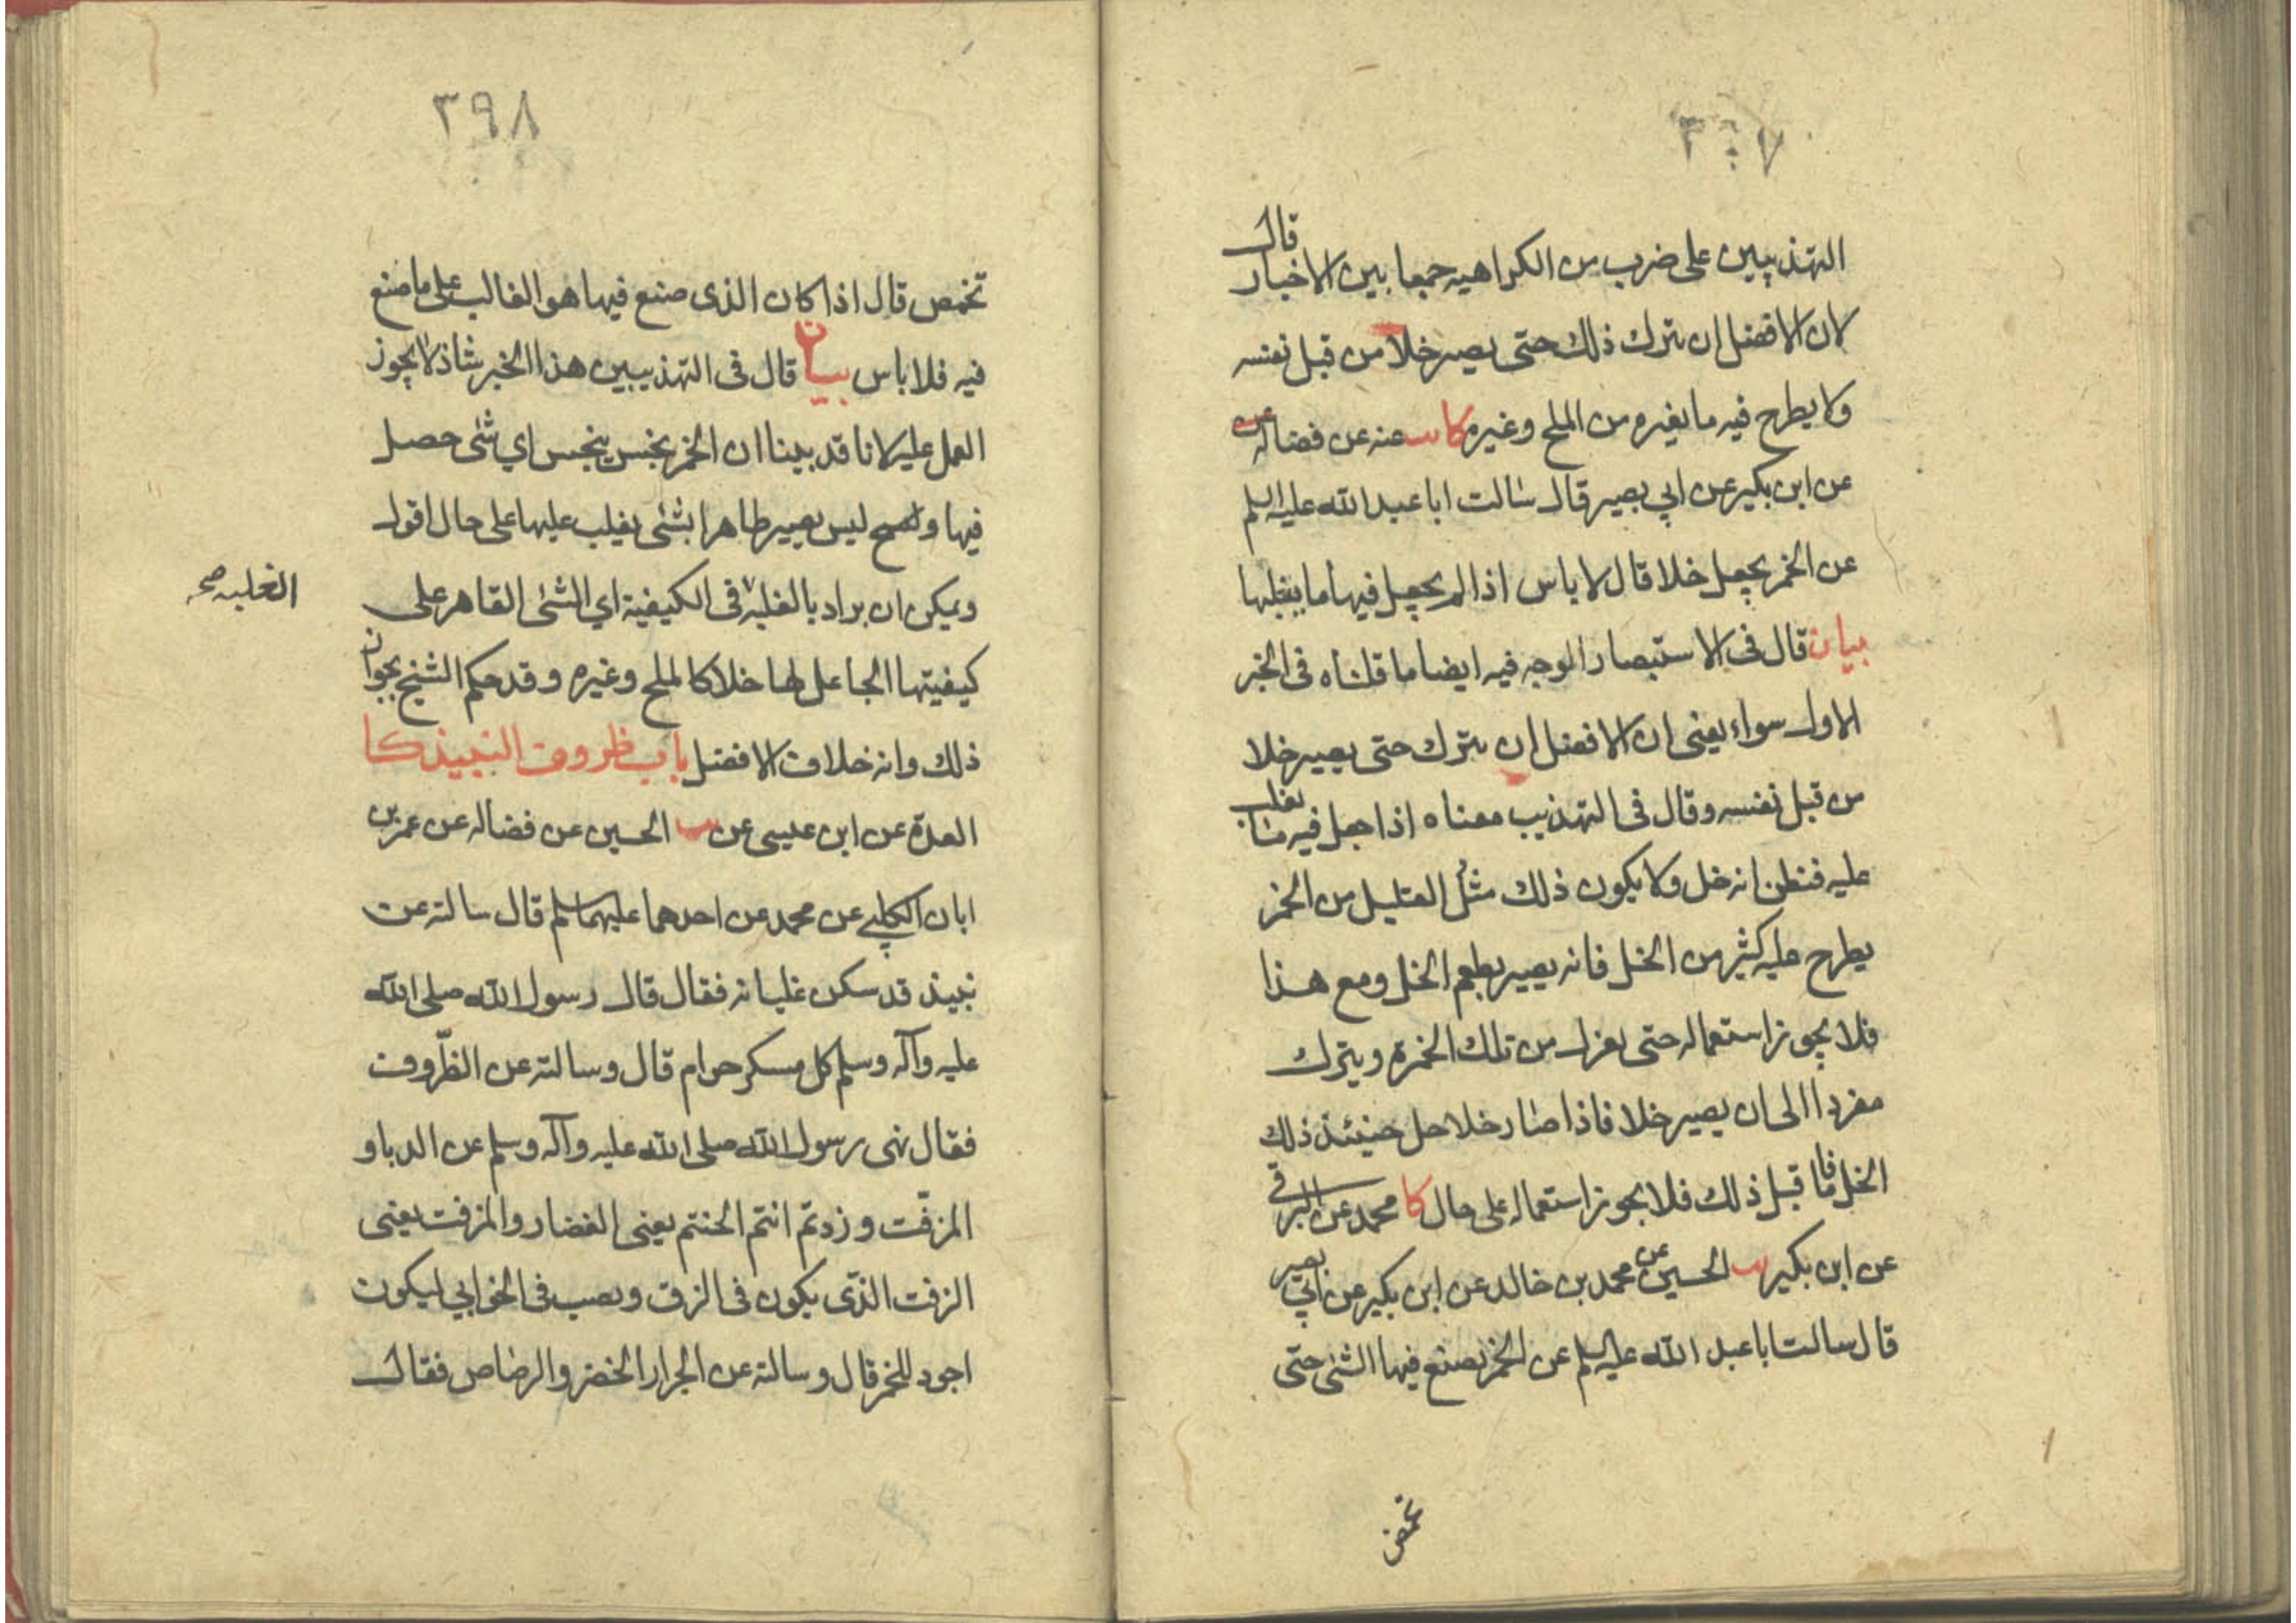 ٣٩٧
التهذيبين على ضرب من الكراهيه جمعا بين الاخبار قال
لان الافضل ان يترك ذلك حتى يصير خلا من قبل نفسه
ولا يطرح فيه ما يغيره من الملح وغيره كا يب عنه عن فضاله
عن ابن بكير عن ابي بصير قال سالت ابا عبد الله عليه السلم
عن الخمر يجعل خلا قال لا باس اذا لم يجعل فيها ما يغلبها
بيان قال في الاستبصار الوجه فيه ايضا ما قلناه في الخبر
الاول سواء يعني ان الافضل ان يترك حتى يصير خلا
من قبل نفسه وقال في التهذيب معناه اذا جعل فيه ما يغلب
عليه فنظن انه خل ولا يكون ذلك مثل القليل من الخمر
يطرح عليه كثير من الخل فانه يصير بطعم الخل ومع هذا
فلا يجوز استعماله حتى يعزل من تلك الخمرة ويترك
مفردا الى ان يصير خلا فاذا صار خلا حل حينئذ ذلك
الخل فاما قبل ذلك فلا يجوز استعماله على حال كا محمد عن البرقي
عن ابن بكير يب الحسين عن محمد بن خالد عن ابن بكير عن ابي بصير
قال سالت ابا عبد الله عليه السلم عن الخمر يصنع فيها الشئ حتى
تحمض
٣٩٨
تحمص قال اذا كان الذي صنع فيها هو الغالب على ما صنع
فيه فلا باس بيان قال في التهذيبين هذا الخبر شاذ لا يجوز
العمل عليه لانا قد بينا ان الخمر نجس ينجس اي شئ حصل
فيها و ليس يصير طاهرا بشئ يغلب عليها على حال اقول
ويمكن ان يراد بالغلبه في الكيفية اي الشئ القاهر على
الغلبه صح
كيفيتها الجاعل لها خلا كالملح وغيره وقد حكم الشيخ بجواز
ذلك وانه خلاف الافضل باب ظروف النبيذ كا
العدة عن ابن عيسى عن يب الحسين عن فضاله عن عمر بن
ابان الكلبي عن محمد عن احدهما عليهما سلم قال سالته عن
نبيذ قد سكن غليانه فقال قال رسول الله صلى الله
عليه وآله وسلم كل مسكر حرام قال وسالته عن الظروف
فقال نهى رسول الله صلى الله عليه وآله وسلم عن الدبا و
المزفت وزدتم انتم الحنتم يعني الغضار والمزفت يعني
الزفت الذي يكون في الزق ويصب في الخوابي ليكون
اجود للخمر قال وسالته عن الجرار الخضر والرصاص فقال